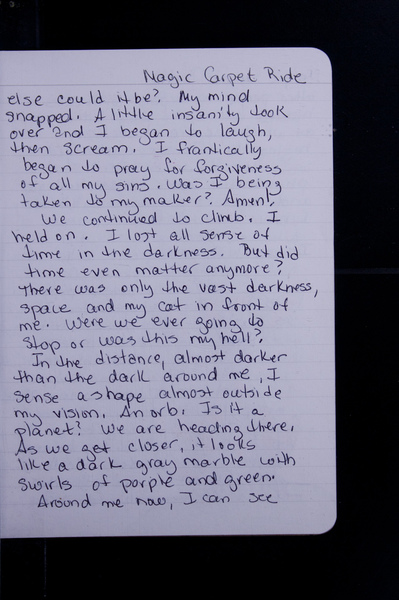 Magic Carpet Ride
else could it be? My mind
snapped. A little insanity took
over and I began to laugh,
then scream. I frantically
began to pray for forgiveness
of all my sins. Was I being
taken to my maker? Amen!
We continued to climb. I
held on. I lost all sense of
time in the darkness. But did
time even matter anymore?
There was only the vast darkness,
space and my cat in front of
me. Were we ever going to
stop or was this my hell?
In the distance, almost darker
than the dark around me, I
sense a shape almost outside
my vision. An orb. Is it a
planet? We are heading there.
As we get closer, it looks
like a dark gray marble with
swirls of porple and green.
Around me now, I can see